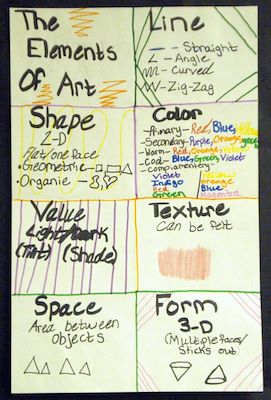 The
Elements
Of Art
Line
- Straight
- Angle
- Curved
- Zig-Zag
Shape
2-D
Flat/one face
•Geometric-
•Organic-
Color
-Primary- Red, Blue, Yellow
-Secondary-Purple, Orange, green
-Warm- Red, Orange, Yellow
-Cool- Blue, Green, Violet
-Complimentary-
Violet Yellow
Indigo orange
Red Blue
Green Magenta
Value
Light/Dark
(Tint) (Shade)
Texture
Can be felt
Space
Area between
objects
Form
3-D
(Multiple faces/
Sticks out)